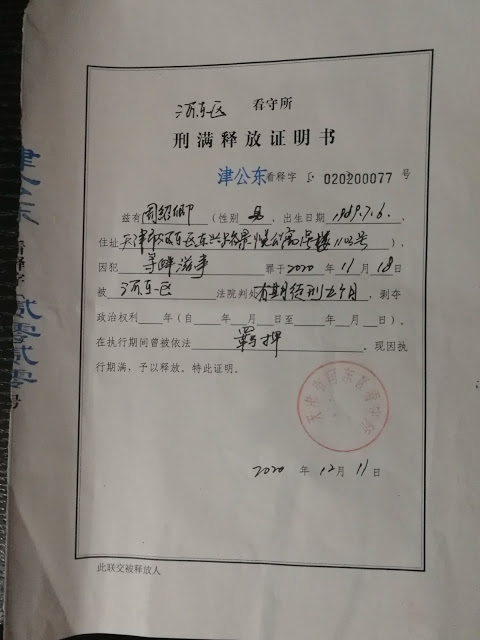 河东区 看守所
刑满释放证明书
津公东看释字 020200077 号
兹有 周绍卿 (性别 男 , 出生日期 1969.7.6. ,
住址 天津市河东区东兴路景悦公寓 号楼1103号 ),
因犯 寻衅滋事 罪于 2020 年 11 月 18 日
被 河东区 法院判处 有期徒刑五个月 , 剥夺
政治权利 年(自 年 月 日至 年 月 日)。
在执行期间曾被依法 羁押 。现因执
行期满,予以释放。特此证明。
天津市河东区看守所
2020 年 12 月 11 日
此联交被释放人
津公东 看释字 贰零贰零 号